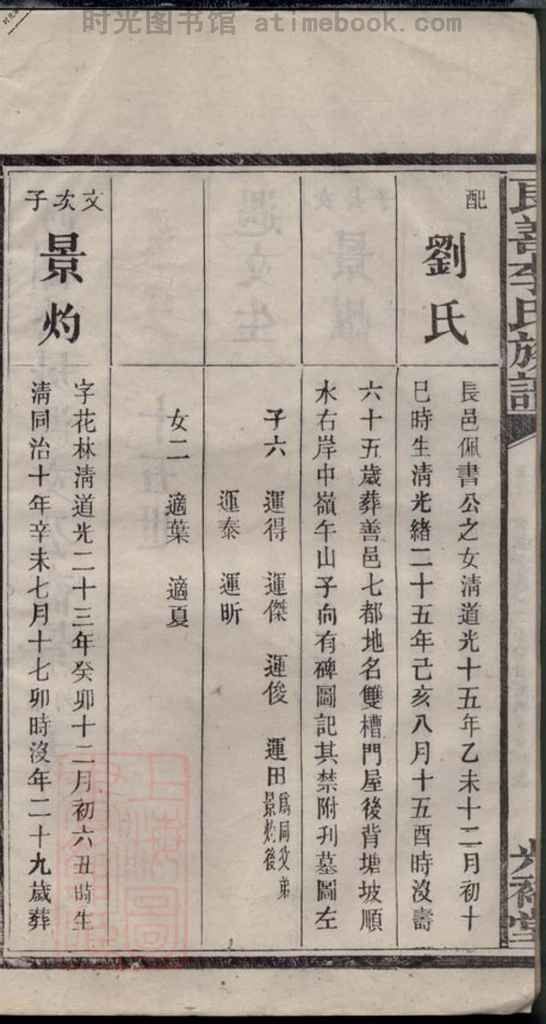 时光图书馆 atimebook.com
長善李氏族譜
光裕堂
配
劉氏
長邑佩書公之女清道光十五年乙未十二月初十
巳時生清光緒二十五年己亥八月十五酉時沒壽
六十五歲葬善邑七都地名雙槽門屋後背塘坡順
水右岸中嶺午山子向有碑圖記其禁附刊墓圖左
子六 運得 運傑 運俊 運田爲同父弟景灼後
運泰 運昕
女二 適葉 適夏
文次子
景灼
字花林清道光二十三年癸卯十二月初六丑時生
清同治十年辛未七月十七卯時沒年二十九歲葬